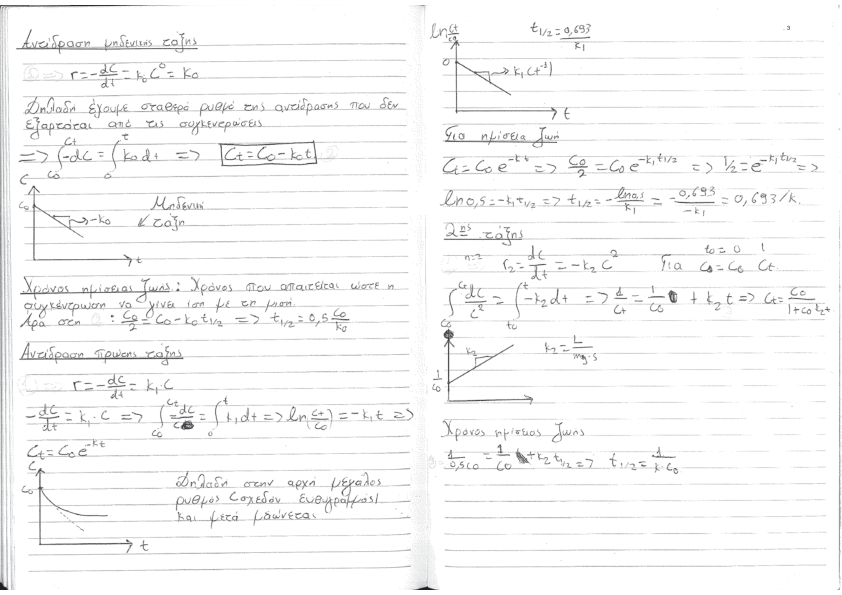 Αντίδραση μηδενικής τάξης
① => r = -dC/dt = k₀C⁰ = k₀
Δηλαδή έχουμε σταθερό ρυθμό της αντίδρασης που δεν
εξαρτάται από τις συγκεντρώσεις
=> ∫_{C₀}^{Ct} -dC = ∫_0^t k₀dt => Ct = C₀ - k₀t ②
C
C₀
-k₀
Μηδενική
τάξη
t
Χρόνος ημίσειας ζωής: Χρόνος που απαιτείται ώστε η
συγκέντρωση να γίνει ίση με τη μισή.
Άρα στη ② : C₀/2 = C₀ - k₀t₁/₂ => t₁/₂ = 0,5 C₀/k₀
Αντίδραση πρώτης τάξης
① => r = -dC/dt = k₁·C
-dC/dt = k₁·C => ∫_{C₀}^{Ct} -dC/C = ∫_0^t k₁dt => ln(Ct/C₀) = -k₁t =>
Ct = C₀e^{-kt}
C
C₀
Δηλαδή στην αρχή μεγάλος
ρυθμός (σχεδόν ευθύγραμμος)
και μετά μειώνεται
t
ln Ct/C₀
t₁/₂ = 0,693/k₁
0
k₁(t⁻¹)
t
Για ημίσεια ζωή
Ct = C₀e^{-kt} => C₀/2 = C₀e^{-k₁t₁/₂} => 1/2 = e^{-k₁t₁/₂} =>
ln0,5 = -k₁t₁/₂ => t₁/₂ = -ln0,5/k₁ = -0,693/-k₁ = 0,693/k.
2ης τάξης
n=2 r₂ = dC/dt = -k₂C² Για t₀=0 t
C₀=C₀ Ct
∫_{C₀}^{Ct} dC/C² = ∫_{t₀}^t -k₂dt => 1/Ct = 1/C₀ + k₂t => Ct = C₀/1+C₀k₂t
k₂
k₂ = L/mg·s
1/C₀
Χρόνος ημίσειας ζωής
1/0,5C₀ = 1/C₀ + k₂t₁/₂ => t₁/₂ = 1/k·C₀